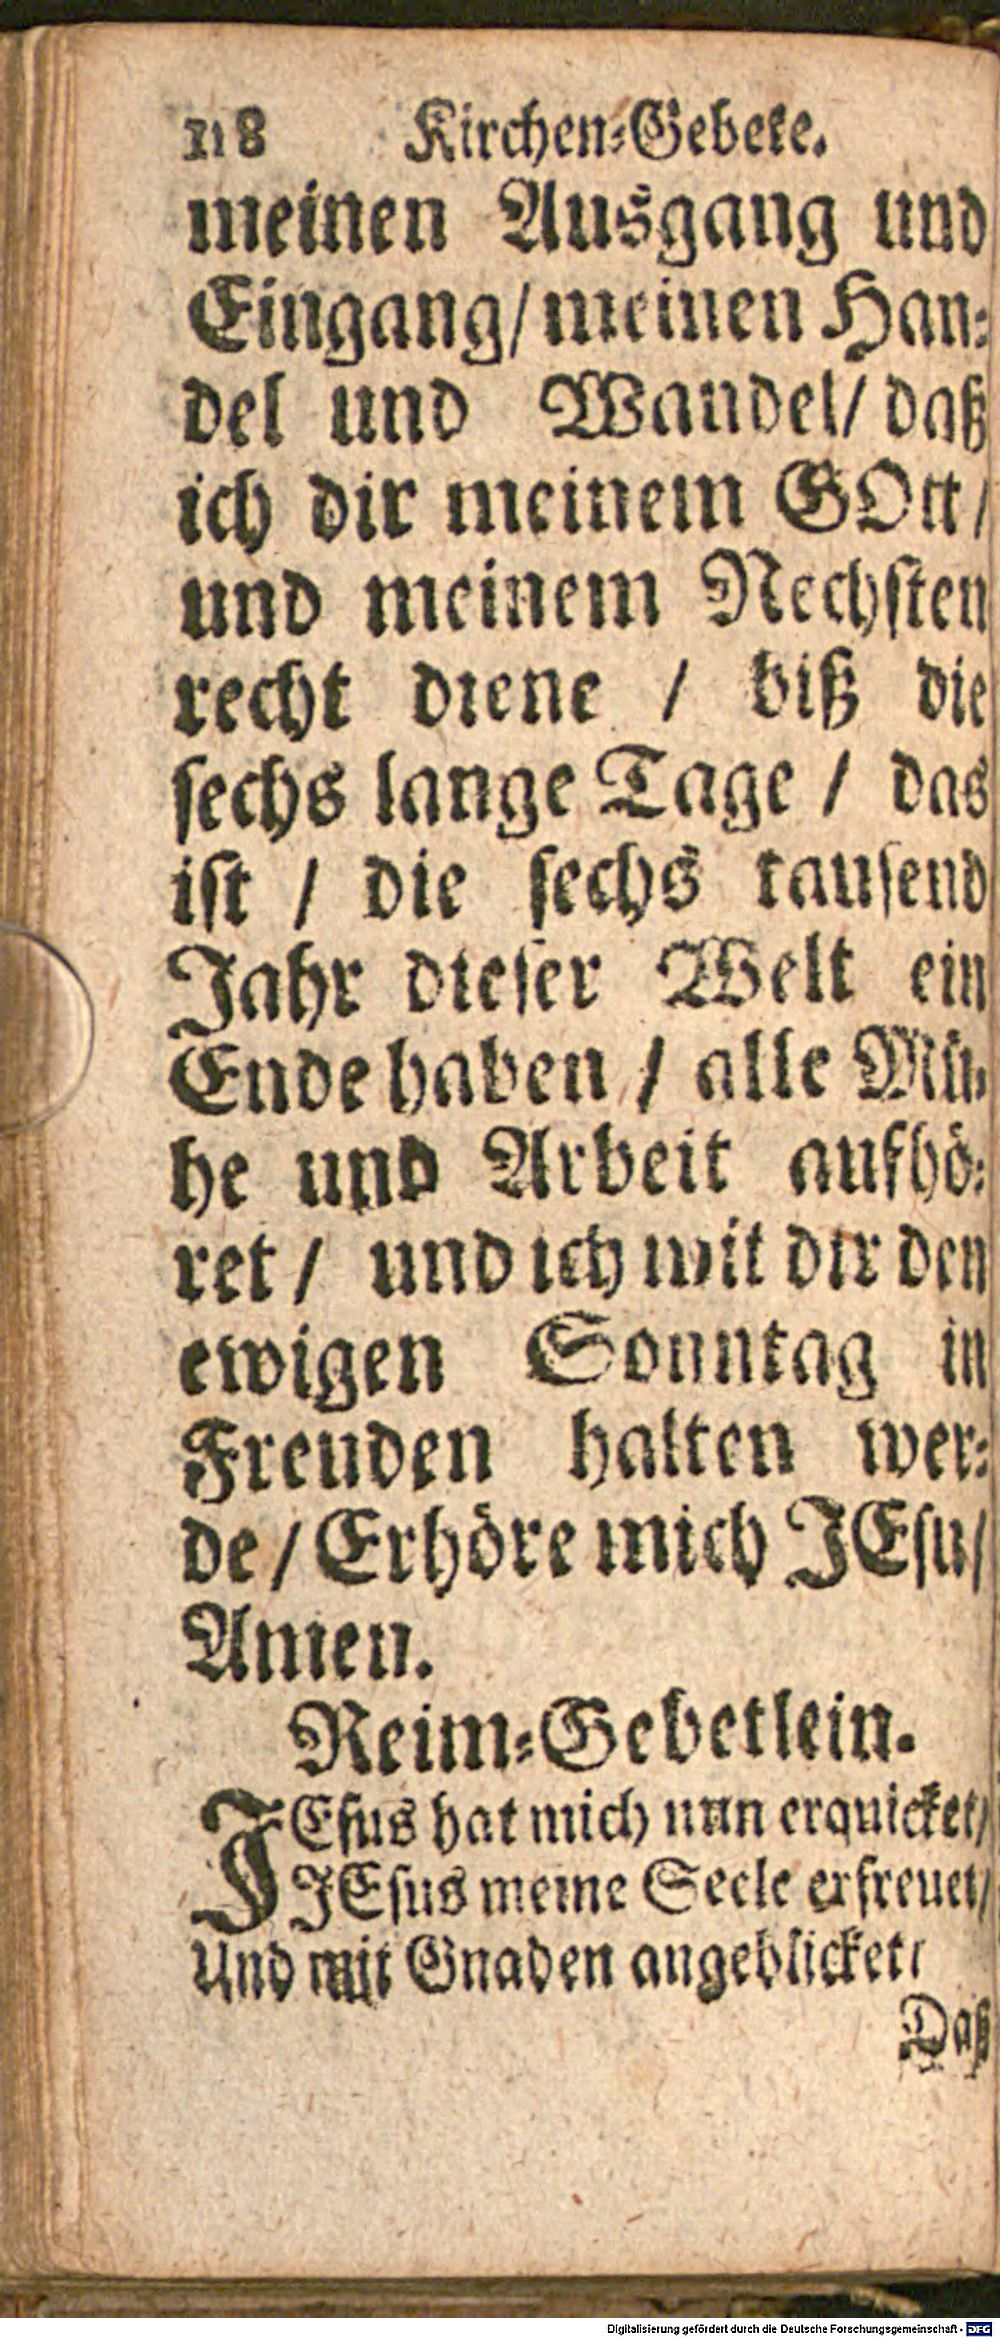 118 Kirchen-Gebete.
meinen Ausgang und
Eingang/ meinen Han-
del und Wandel/ daß
ich dir meinem GOtt/
und meinem Nechsten
recht diene / biß die
sechs lange Tage / das
ist / die sechs tausend
Jahr dieser Welt ein
Ende haben / alle Mü-
he und Arbeit aufhö-
ret / und ich mit dir den
ewigen Sonntag in
Freuden halten wer-
de / Erhöre mich JEsu/
Amen.
Reim-Gebetlein.
JEsus hat mich nun erquicket/
JEsus meine Seele erfreuet/
Und mit Gnaden angeblicket/
Daß
Digitalisierung gefördert durch die Deutsche Forschungsgemeinschaft - DFG